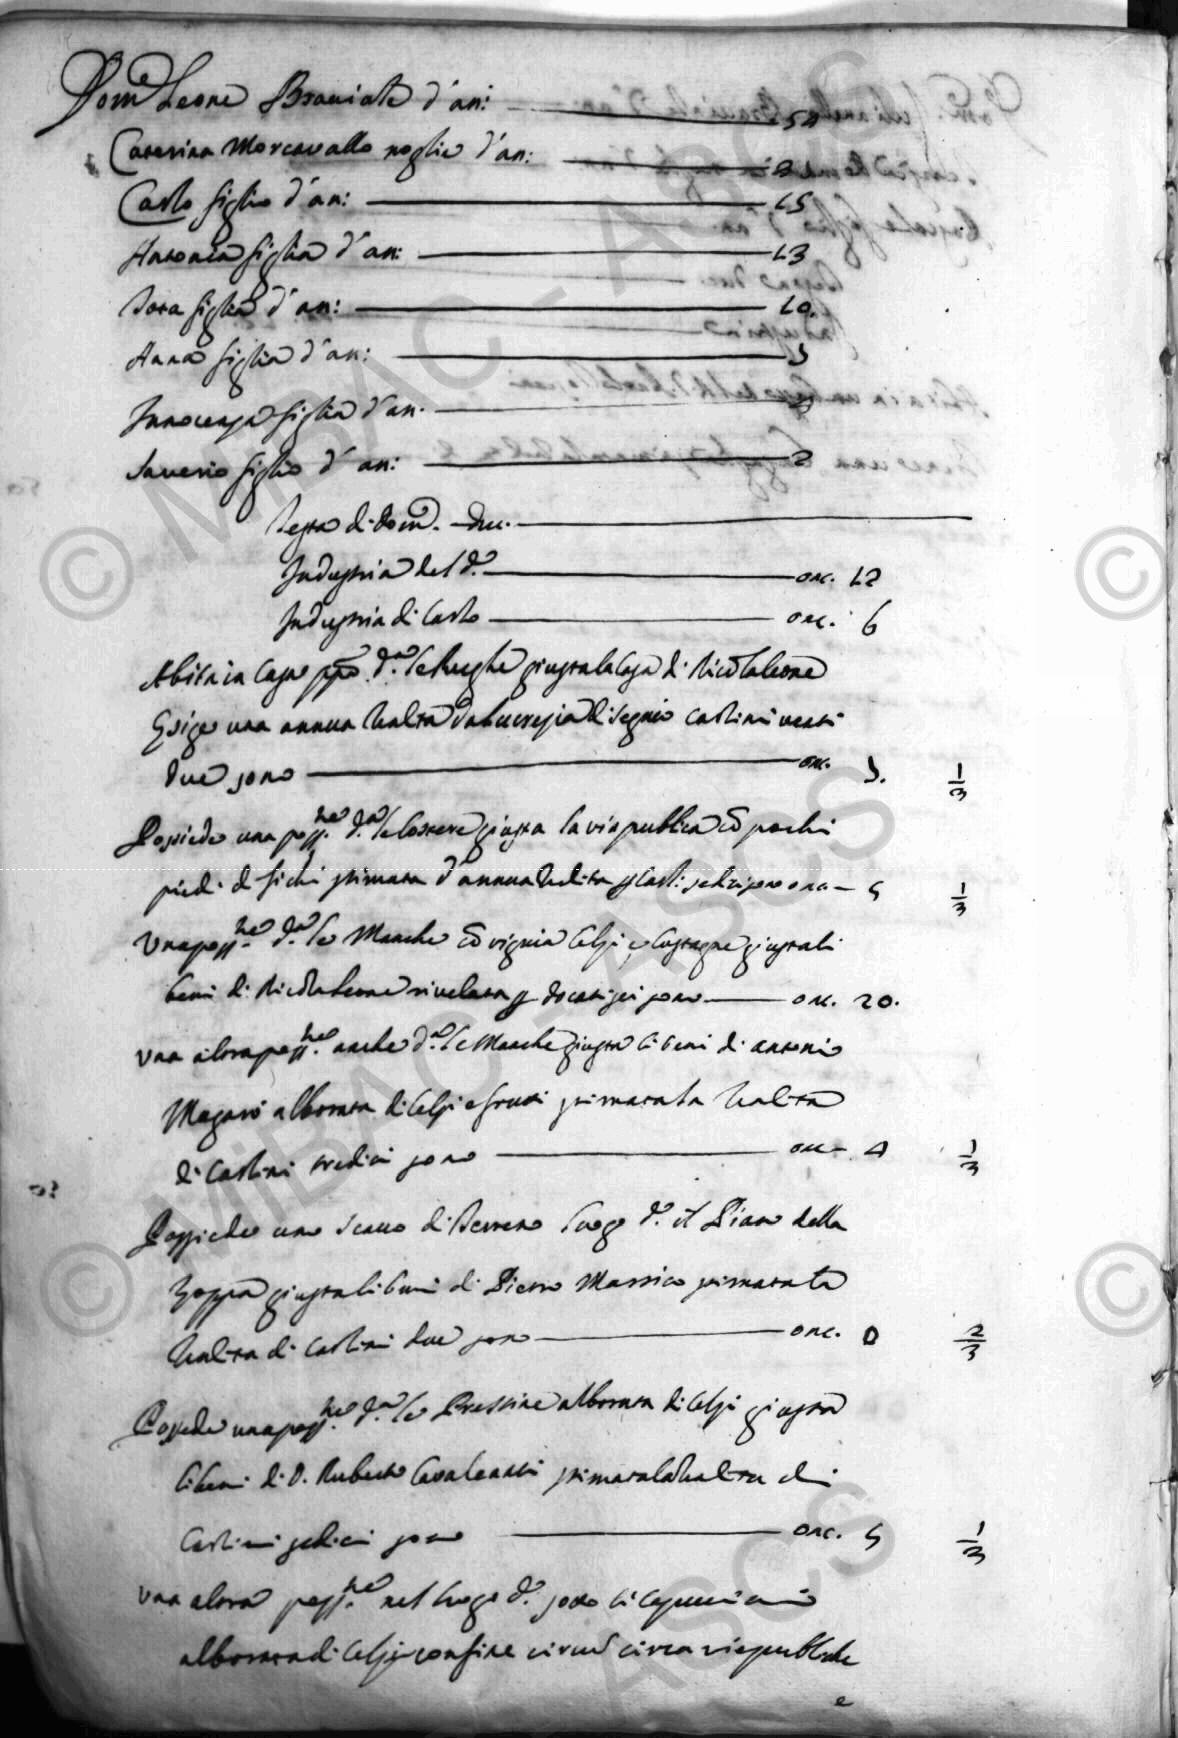 Dom.co Leone Bracciale d'an: 54
Caterina Morcavallo moglie d'an:
Carlo figlio d'an: 15
Antonia figlia d'an: 13
figlia d'an: 10.
Anna figlia d'an:
Innocenza figlia d'an.
Saverio figlio d'an: 2
Testa di Dom.co duc.
Industria del d.o onc. 12
Industria di Carlo onc. 6
Abita in casa pp.a d.a le Rughe giusta la casa di Nicola Leone
Esige una annua rendita da Lucrezia di Segnio carlini venti
due sono onc. 1/3
Possiede una poss.ne d.a le giusta la via publica con pochi
piedi di fichi stimata d'annua rendita p carl: sedici sono onc. 5 1/3
Una poss.ne d.a le Manche con vignia celsi e castagne giusta li
beni di Nicola Leone rivelata p docati sei sono onc. 20.
Una altra poss.ne anche d.a le Manche giusta li beni di Antonio
Magarò alborata di celsi e frutti stimata la rendita
di carlini tredici sono onc. 4 1/3
Possiede uno di terreno luogo d.o il Piano della
Zoppa giusta li beni di Pietro Massico stimata la
rendita di carlini due sono onc. 0 2/3
Possiede una poss.ne d.a le alborata di celsi giusta
li beni di D. Ruberto Cavalcanti stimata la rendita di
carlini sedici sono onc. 5 1/3
Una altra poss.ne nel luogo d.o sotto li Capuccini
alborata di celsi confine circum circa vie publiche
e
© MiBAC - ASCS
© MiBAC - ASCS ©
© ASCS ©